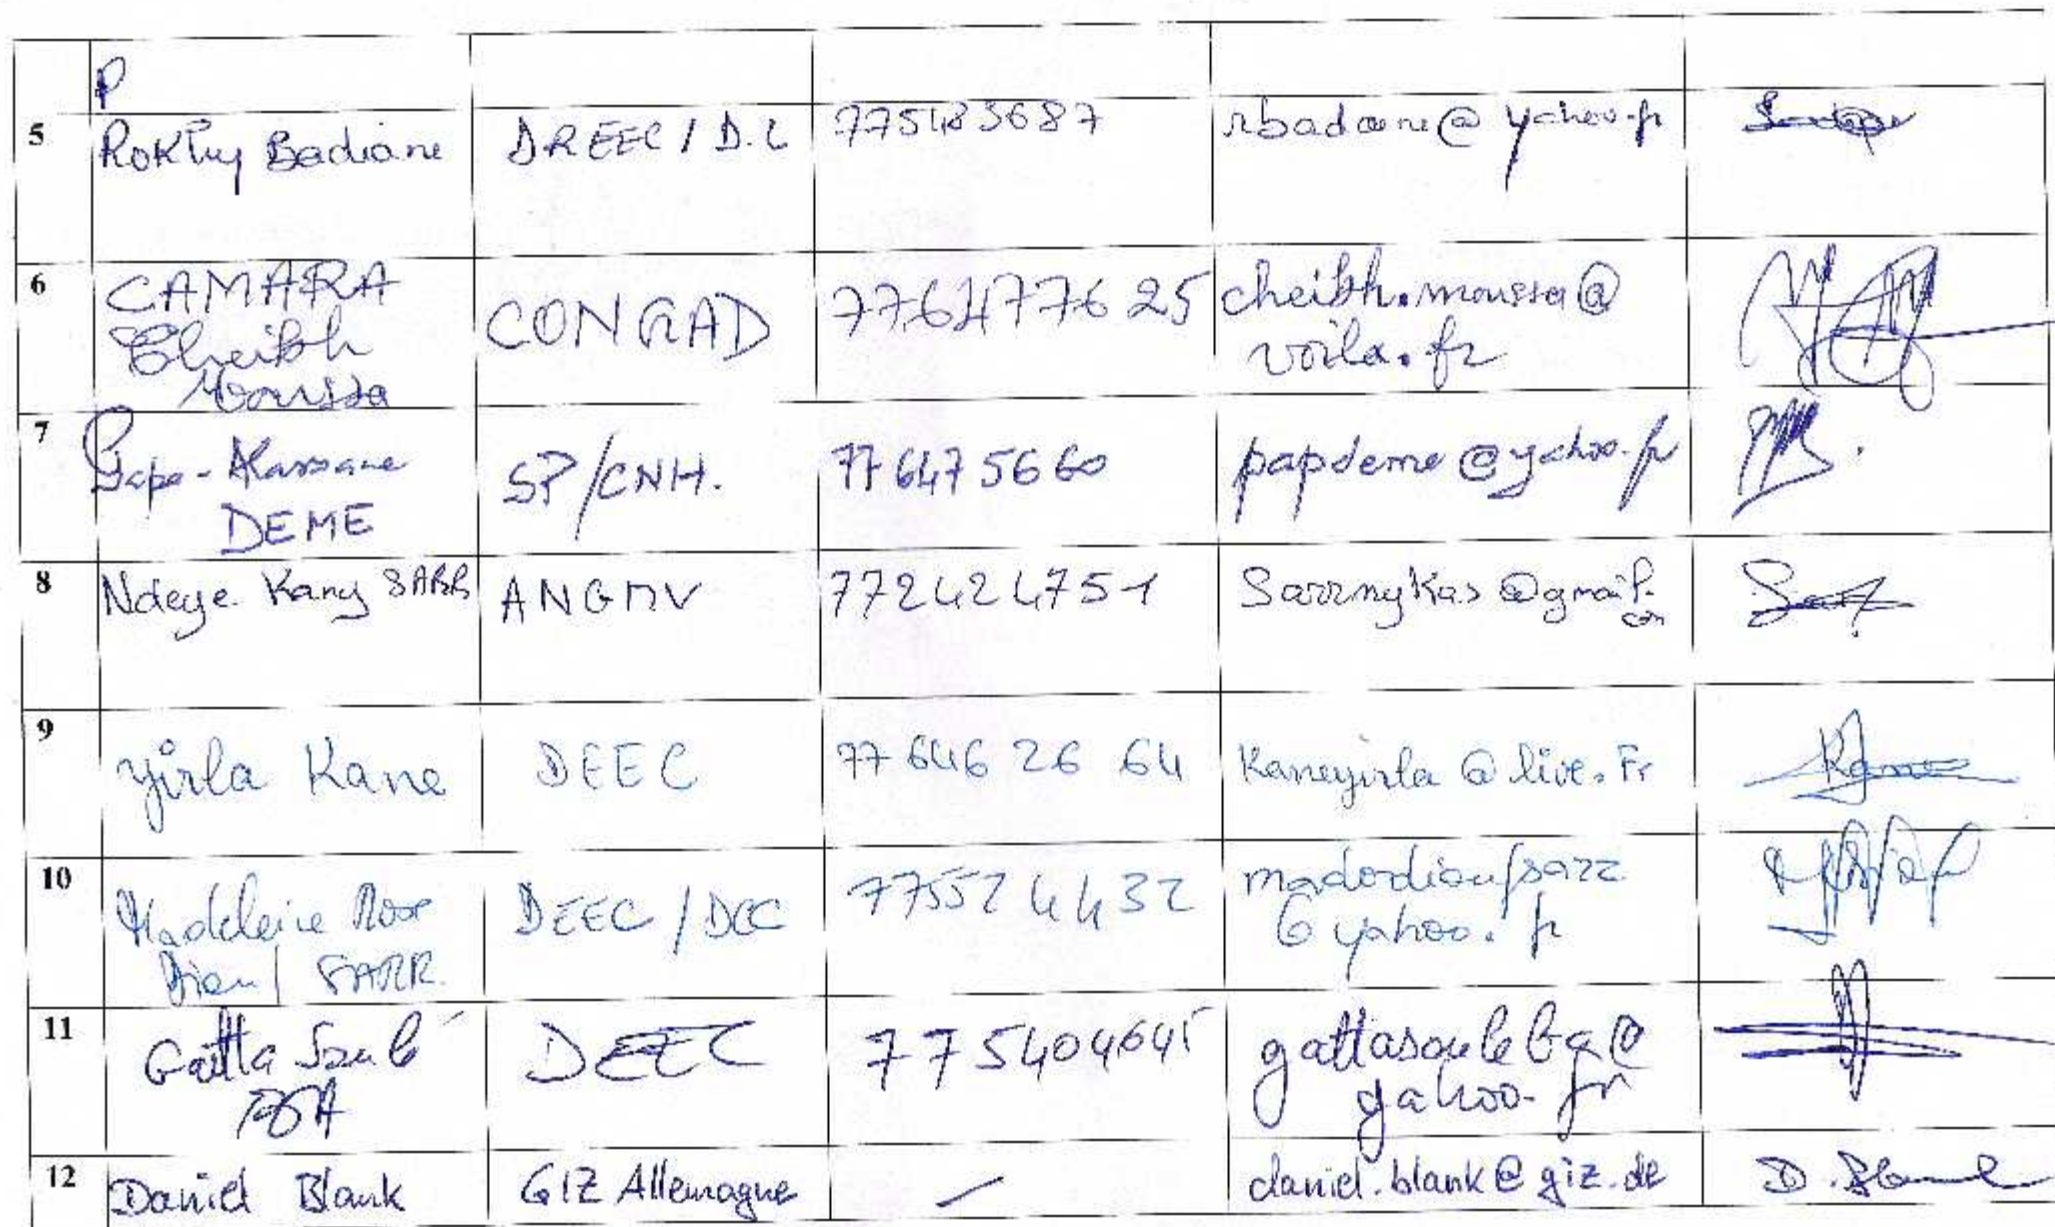 P
5 Rokhy Badiane DREEC / D.L 775483687 rbadiane@yahoo.fr
6 CAMARA Cheikh Moussa CONGAD 7764776 25 cheikh.moussa@voila.fr
7 Pape-Alassane DEME SP/CNH. 77 647 56 60 papdeme@yahoo.fr
8 Ndeye Kany SARR ANGMV 772424751 Sarrnykas@gmail.com
9 yirla Kane DEEC 77 646 26 64 Kaneyirla@live.Fr
10 Madeleine Rose Diouf SARR. DEEC / DCC 77552 44 32 madodioufsarr@yahoo.fr
11 Gatta Soulé BA DEEC 775404645 gattasouleba@yahoo.fr
12 Daniel Blank GIZ Allemagne — daniel.blank@giz.de D. Blank